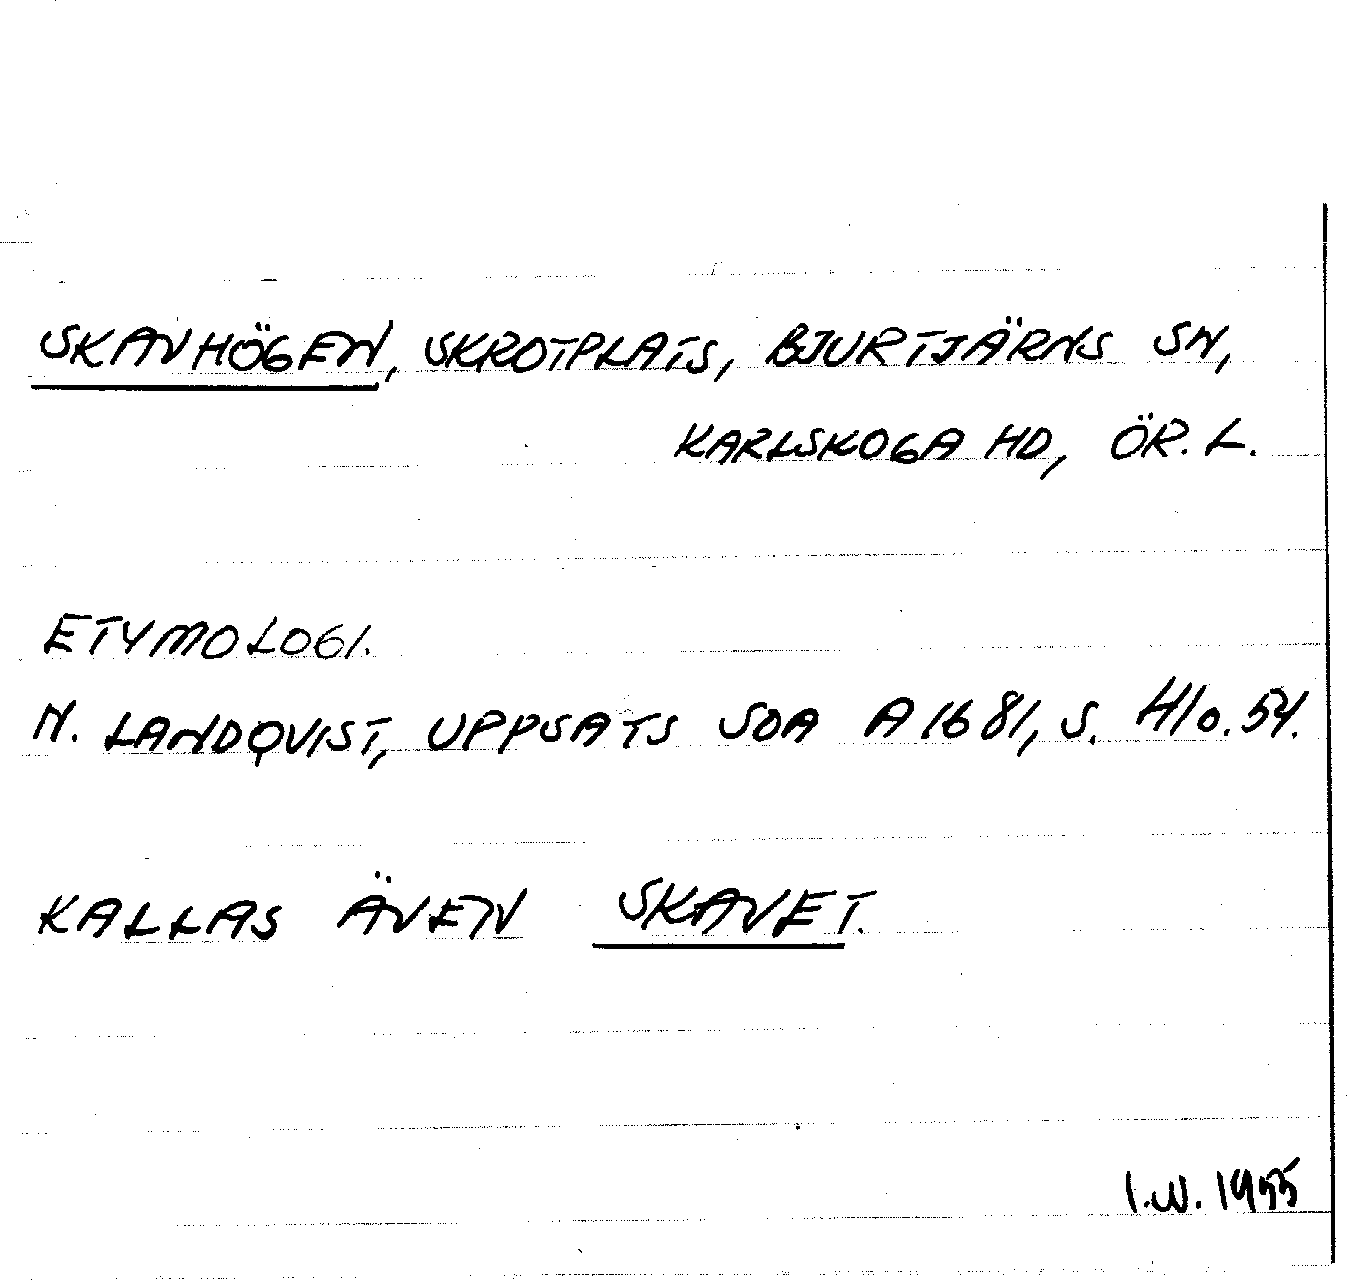 SKAVHÖGEN, SKROTPLATS, BJURTJÄRNS SN,
KARLSKOGA HD, ÖR. L.
ETYMOLOGI.
N. LANDQVIST, UPPSATS SOA A 1681, S. 41 o. 54.
KALLAS ÄVEN SKAVET.
I.W. 1955